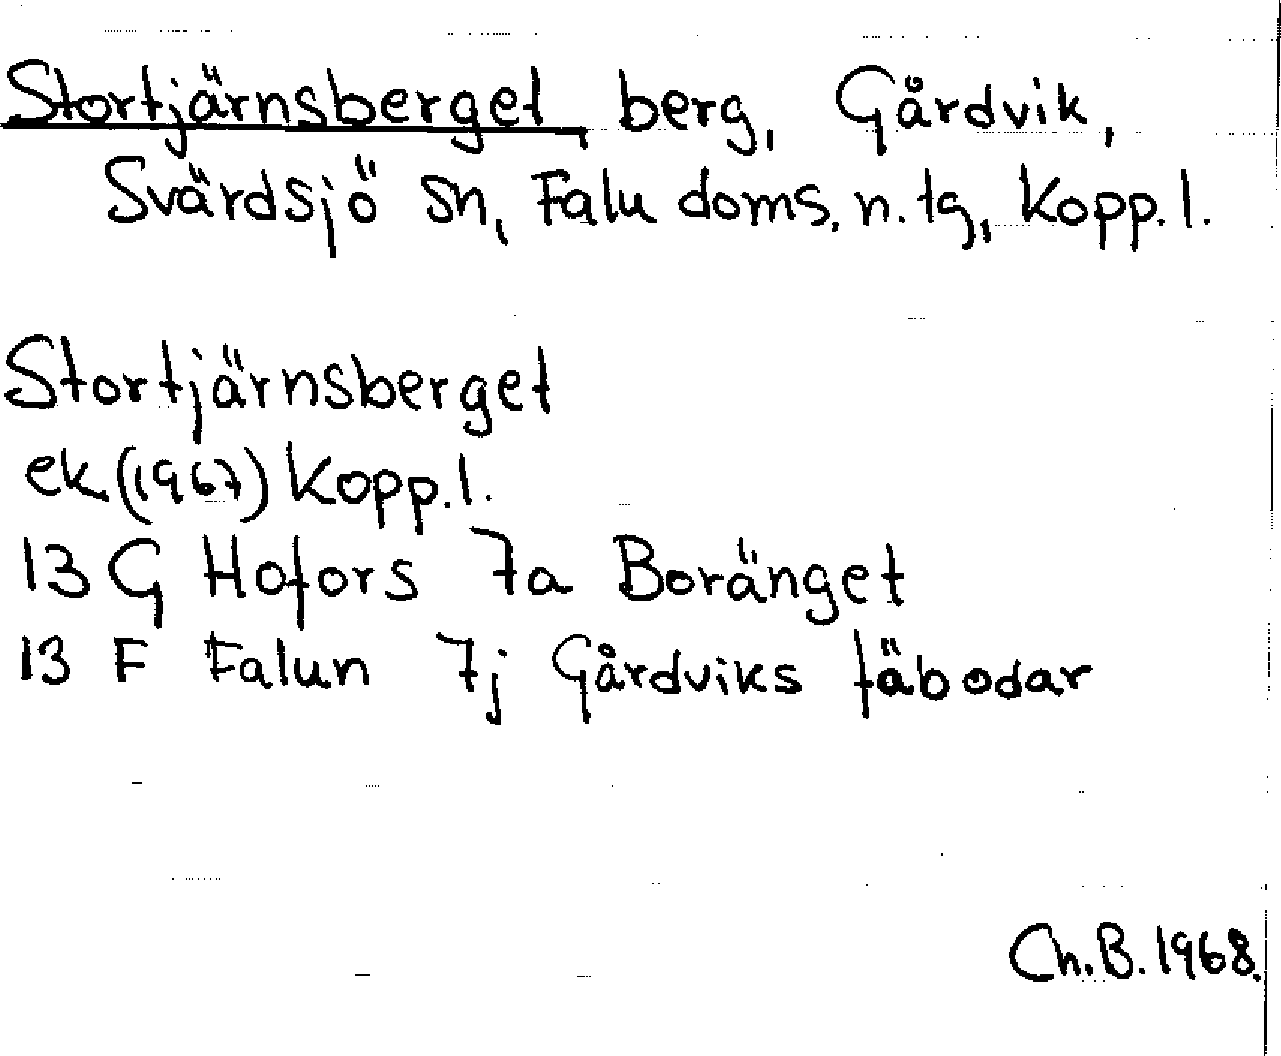 Stortjärnsberget, berg, Gårdvik,
Svärdsjö sn, Falu doms. n. tg, Kopp. l.
Stortjärnsberget
ek (1967) Kopp. l.
13 G Hofors 7a Boränget
13 F Falun 7j Gårdviks fäbodar
Ch. B. 1968.